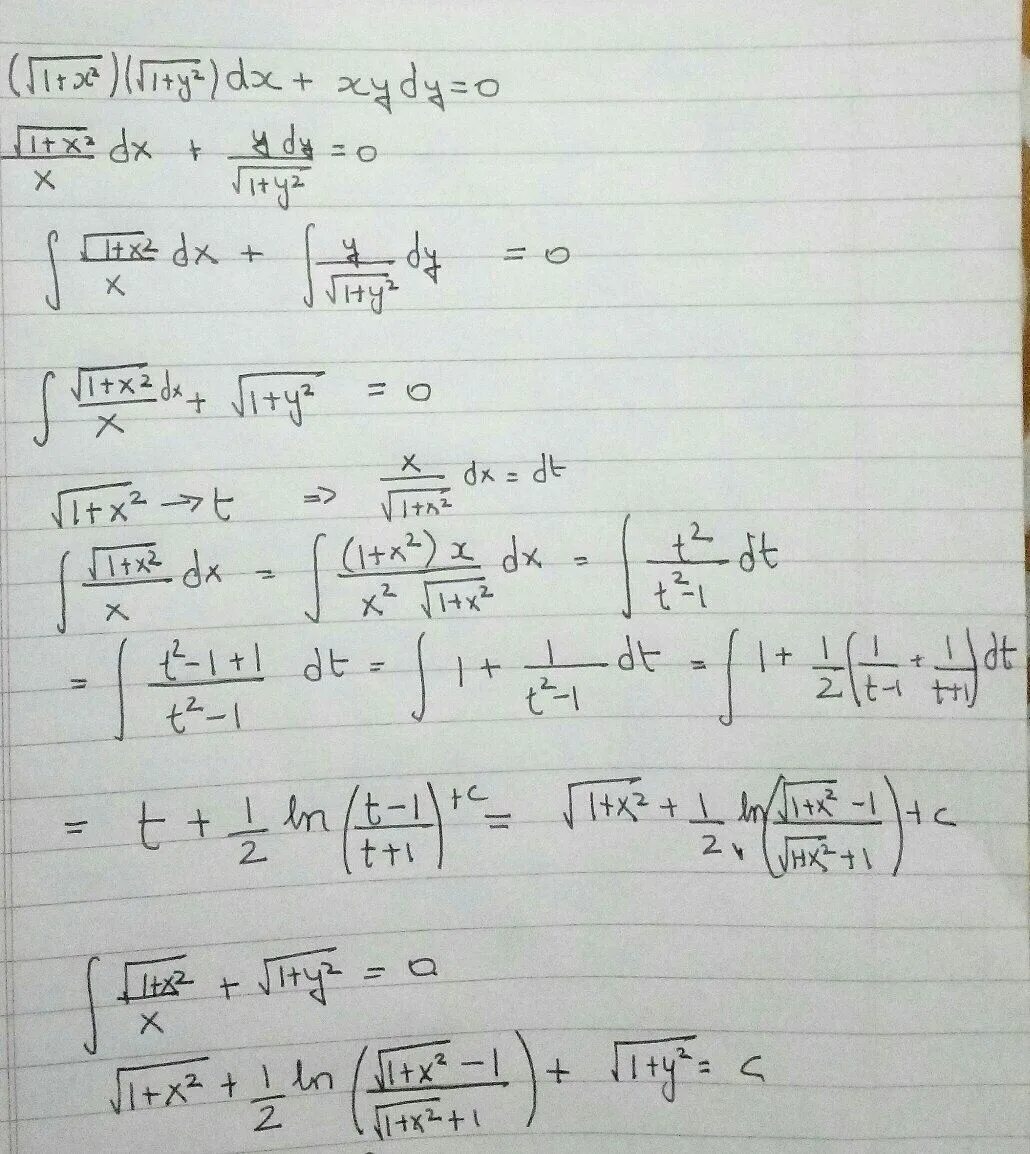 (√(1+x²))(√(1+y²))dx + xy dy = 0
√(1+x²)/x dx + y dy/√(1+y²) = 0
∫ √(1+x²)/x dx + ∫ y/√(1+y²) dy = 0
∫ √(1+x²)/x dx + √(1+y²) = 0
√(1+x²) → t ⇒ x/√(1+x²) dx = dt
∫ √(1+x²)/x dx = ∫ (1+x²)x/(x²√(1+x²)) dx = ∫ t²/(t²-1) dt
= ∫ (t²-1+1)/(t²-1) dt = ∫ 1 + 1/(t²-1) dt = ∫ 1 + 1/2 (1/(t-1) + 1/(t+1)) dt
= t + 1/2 ln((t-1)/(t+1)) + c = √(1+x²) + 1/2 ln((√(1+x²) -1)/(√(1+x²) +1)) + c
∫ √(1+x²)/x + √(1+y²) = 0
√(1+x²) + 1/2 ln((√(1+x²) -1)/(√(1+x²) +1)) + √(1+y²) = c